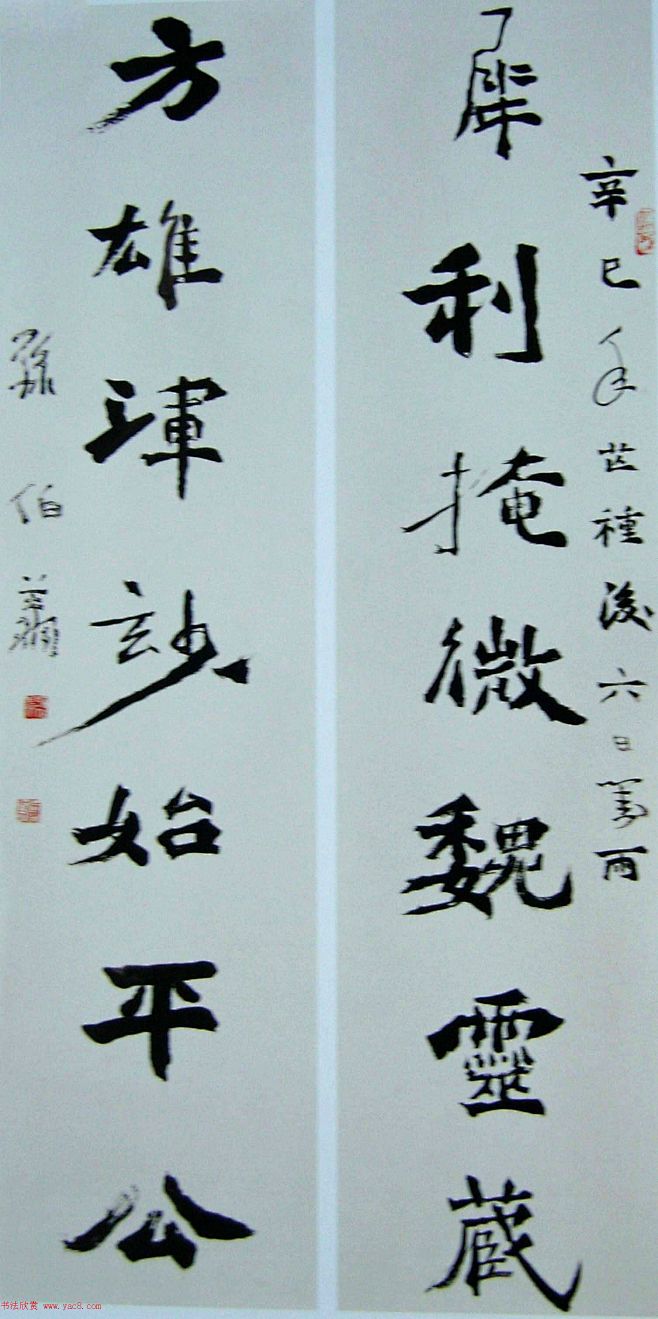 辛巳年芒種後六日雨
犀利掩微魏靈藏
方雄渾玅始平公
孫伯翔
书法欣赏 www.yac8.com